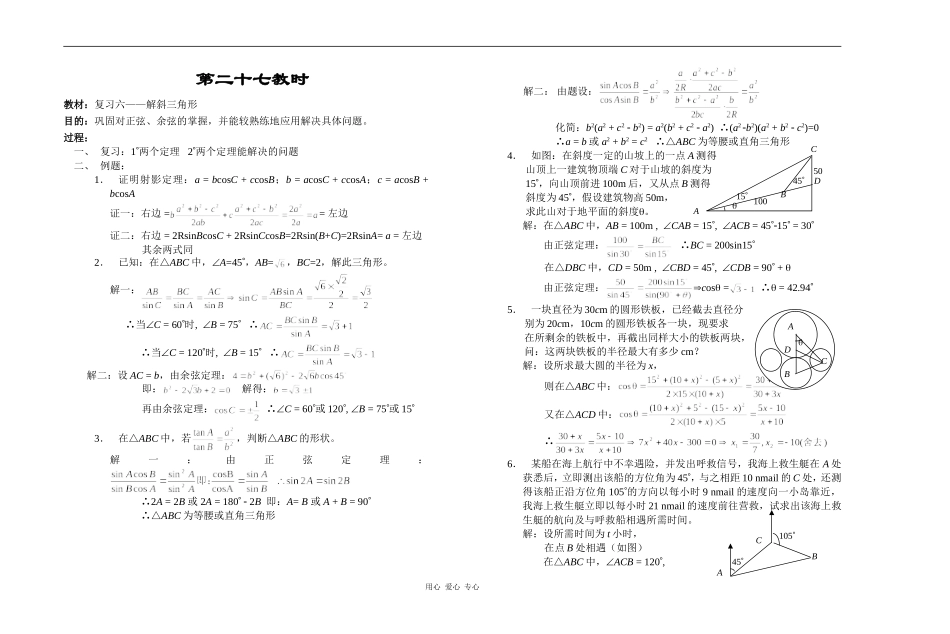 第二十七教时
教材：复习六——解斜三角形
目的：巩固对正弦、余弦的掌握，并能较熟练地应用解决具体问题。
过程：
一、 复习：1°两个定理 2°两个定理能解决的问题
二、 例题：
1． 证明射影定理：a = bcosC + ccosB；b = acosC + ccosA；c = acosB +
bcosA
证一：右边 = b (a²+b²-c²)/2ab + c (a²+c²-b²)/2ac = 2a²/2a = a = 左边
证二：右边 = 2RsinBcosC + 2RsinCcosB=2Rsin(B+C)=2RsinA= a = 左边
其余两式同
2． 已知：在△ABC 中，∠A=45°，AB=√6，BC=2，解此三角形。
解一：AB/sin C = BC/sin A = AC/sin B ⇒ sin C = AB sin A/BC = (√6×√2/2)/2 = √3/2
∴当∠C = 60°时, ∠B = 75° ∴AC = BC sin B/sin A = √3+1
∴当∠C = 120°时, ∠B = 15° ∴AC = BC sin B/sin A = √3-1
解二：设 AC = b，由余弦定理：4=b²+(√6)²-2√6b cos45
即：b²-2√3b+2=0 解得：b=√3±1
再由余弦定理：cos C=±1/2 ∴∠C = 60°或 120°, ∠B = 75°或 15°
3． 在△ABC 中，若 tan A/tan B = a²/b²，判断△ABC 的形状。
解一：由正弦定理：
sin A cos B/sin B cos A = sin² A/sin² A 即: cosB/cosA = sin A/sin B ∴sin 2A=sin 2B
∴2A = 2B 或 2A = 180° - 2B 即：A= B 或 A + B = 90°
∴△ABC 为等腰或直角三角形
解二： 由题设：sin A cos B/cos A sin B = a²/b² ⇒ (a/2R · (a²+c²-b²)/2ac)/((b²+c²-a²)/2bc · b/2R) = a²/b²
化简：b²(a² + c² - b²) = a²(b² + c² - a²) ∴(a² -b²)(a² + b² - c²)=0
∴a = b 或 a² + b² = c² ∴△ABC 为等腰或直角三角形
4． 如图：在斜度一定的山坡上的一点 A 测得
山顶上一建筑物顶端 C 对于山坡的斜度为
15°，向山顶前进 100m 后，又从点 B 测得
斜度为 45°，假设建筑物高 50m，
求此山对于地平面的斜度θ。
C
50
45°
D
15°
B
100
θ
A
解：在△ABC 中，AB = 100m , ∠CAB = 15°, ∠ACB = 45°-15° = 30°
由正弦定理：100/sin 30 = BC/sin 15 ∴BC = 200sin15°
在△DBC 中，CD = 50m , ∠CBD = 45°, ∠CDB = 90° + θ
由正弦定理：50/sin 45 = 200sin 15/sin(90°+θ) ⇒cosθ =√3-1 ∴θ = 42.94°
5． 一块直径为 30cm 的圆形铁板，已经截去直径分
别为 20cm，10cm 的圆形铁板各一块，现要求
在所剩余的铁板中，再截出同样大小的铁板两块，
问：这两块铁板的半径最大有多少 cm？
A
θ
D
C
B
解：设所求最大圆的半径为 x，
则在△ABC 中：cosθ = (15²+(10+x)²-(5+x)²)/(2×15(10+x)) = (30+x)/(30+3x)
又在△ACD 中：cosθ = ((10+x)²+5²-(15-x)²)/(2×(10+x)×5) = (5x-10)/(x+10)
∴(30+x)/(30+3x) = (5x-10)/(x+10) ⇒ 7x²+40x-300=0 ⇒ x₁=30/7, x₂=-10(舍去)
6． 某船在海上航行中不幸遇险，并发出呼救信号，我海上救生艇在 A 处
获悉后，立即测出该船的方位角为 45°，与之相距 10 nmail 的 C 处，还测
得该船正沿方位角 105°的方向以每小时 9 nmail 的速度向一小岛靠近，
我海上救生艇立即以每小时 21 nmail 的速度前往营救，试求出该海上救
生艇的航向及与呼救船相遇所需时间。
解：设所需时间为 t 小时，
在点 B 处相遇（如图）
在△ABC 中，∠ACB = 120°,
C
105°
B
45°
A
用心 爱心 专心